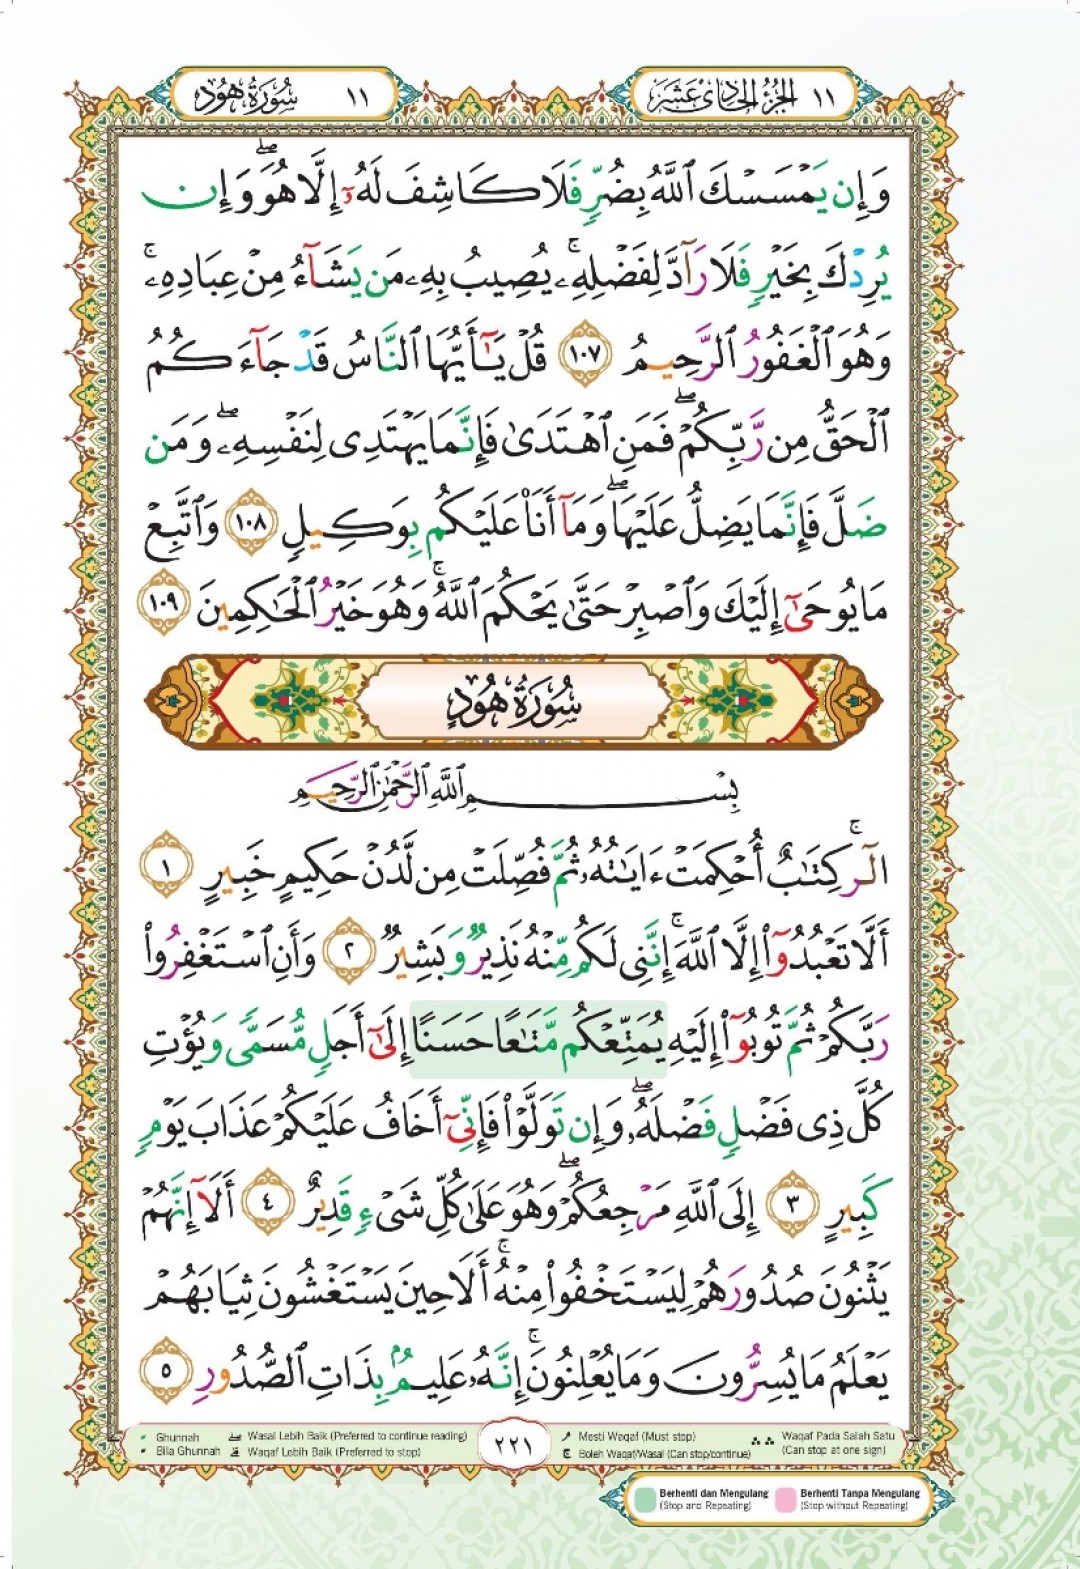 سُورَةُ هُود ١١ الجُزءُ الحَادِي عَشَر ١١
وَإِن يَمْسَسْكَ ٱللَّهُ بِضُرٍّ فَلَا كَاشِفَ لَهُۥٓ إِلَّا هُوَ ۖ وَإِن
يُرِدْكَ بِخَيْرٍ فَلَا رَآدَّ لِفَضْلِهِۦ ۚ يُصِيبُ بِهِۦ مَن يَشَآءُ مِنْ عِبَادِهِۦ ۚ
وَهُوَ ٱلْغَفُورُ ٱلرَّحِيمُ ١٠٧ قُلْ يَـٰٓأَيُّهَا ٱلنَّاسُ قَدْ جَآءَكُمُ
ٱلْحَقُّ مِن رَّبِّكُمْ ۖ فَمَنِ ٱهْتَدَىٰ فَإِنَّمَا يَهْتَدِى لِنَفْسِهِۦ ۖ وَمَن
ضَلَّ فَإِنَّمَا يَضِلُّ عَلَيْهَا ۖ وَمَآ أَنَا۠ عَلَيْكُم بِوَكِيلٍ ١٠٨ وَٱتَّبِعْ
مَا يُوحَىٰٓ إِلَيْكَ وَٱصْبِرْ حَتَّىٰ يَحْكُمَ ٱللَّهُ ۚ وَهُوَ خَيْرُ ٱلْحَـٰكِمِينَ ١٠٩
سُورَةُ هُودٍ
بِسْمِ ٱللَّهِ ٱلرَّحْمَـٰنِ ٱلرَّحِيمِ
الٓر ۚ كِتَـٰبٌ أُحْكِمَتْ ءَايَـٰتُهُۥ ثُمَّ فُصِّلَتْ مِن لَّدُنْ حَكِيمٍ خَبِيرٍ ١
أَلَّا تَعْبُدُوٓا۟ إِلَّا ٱللَّهَ ۚ إِنَّنِى لَكُم مِّنْهُ نَذِيرٌ وَبَشِيرٌ ٢ وَأَنِ ٱسْتَغْفِرُوا۟
رَبَّكُمْ ثُمَّ تُوبُوٓا۟ إِلَيْهِ يُمَتِّعْكُم مَّتَـٰعًا حَسَنًا إِلَىٰٓ أَجَلٍ مُّسَمًّى وَيُؤْتِ
كُلَّ ذِى فَضْلٍ فَضْلَهُۥ ۖ وَإِن تَوَلَّوْا۟ فَإِنِّىٓ أَخَافُ عَلَيْكُمْ عَذَابَ يَوْمٍ
كَبِيرٍ ٣ إِلَى ٱللَّهِ مَرْجِعُكُمْ ۖ وَهُوَ عَلَىٰ كُلِّ شَىْءٍ قَدِيرٌ ٤ أَلَآ إِنَّهُمْ
يَثْنُونَ صُدُورَهُمْ لِيَسْتَخْفُوا۟ مِنْهُ ۚ أَلَا حِينَ يَسْتَغْشُونَ ثِيَابَهُمْ
يَعْلَمُ مَا يُسِرُّونَ وَمَا يُعْلِنُونَ ۚ إِنَّهُۥ عَلِيمٌۢ بِذَاتِ ٱلصُّدُورِ ٥
Ghunnah ۖ Wasal Lebih Baik (Preferred to continue reading) ٢٢١ مـ Mesti Waqaf (Must stop) ∴ ∴ Waqaf Pada Salah Satu
Bila Ghunnah ۗ Waqaf Lebih Baik (Preferred to stop) ج Boleh Waqaf/Wasal (Can stop/continue) (Can stop at one sign)
Berhenti dan Mengulang Berhenti Tanpa Mengulang
(Stop and Repeating) (Stop without Repeating)